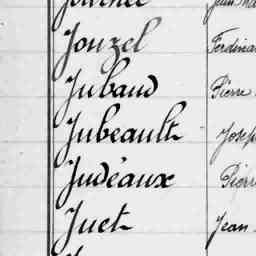 Jouzel Ferdinan
Jubaud Pierre
Jubeault Josep
Judéaux Pierr
Juet Jean